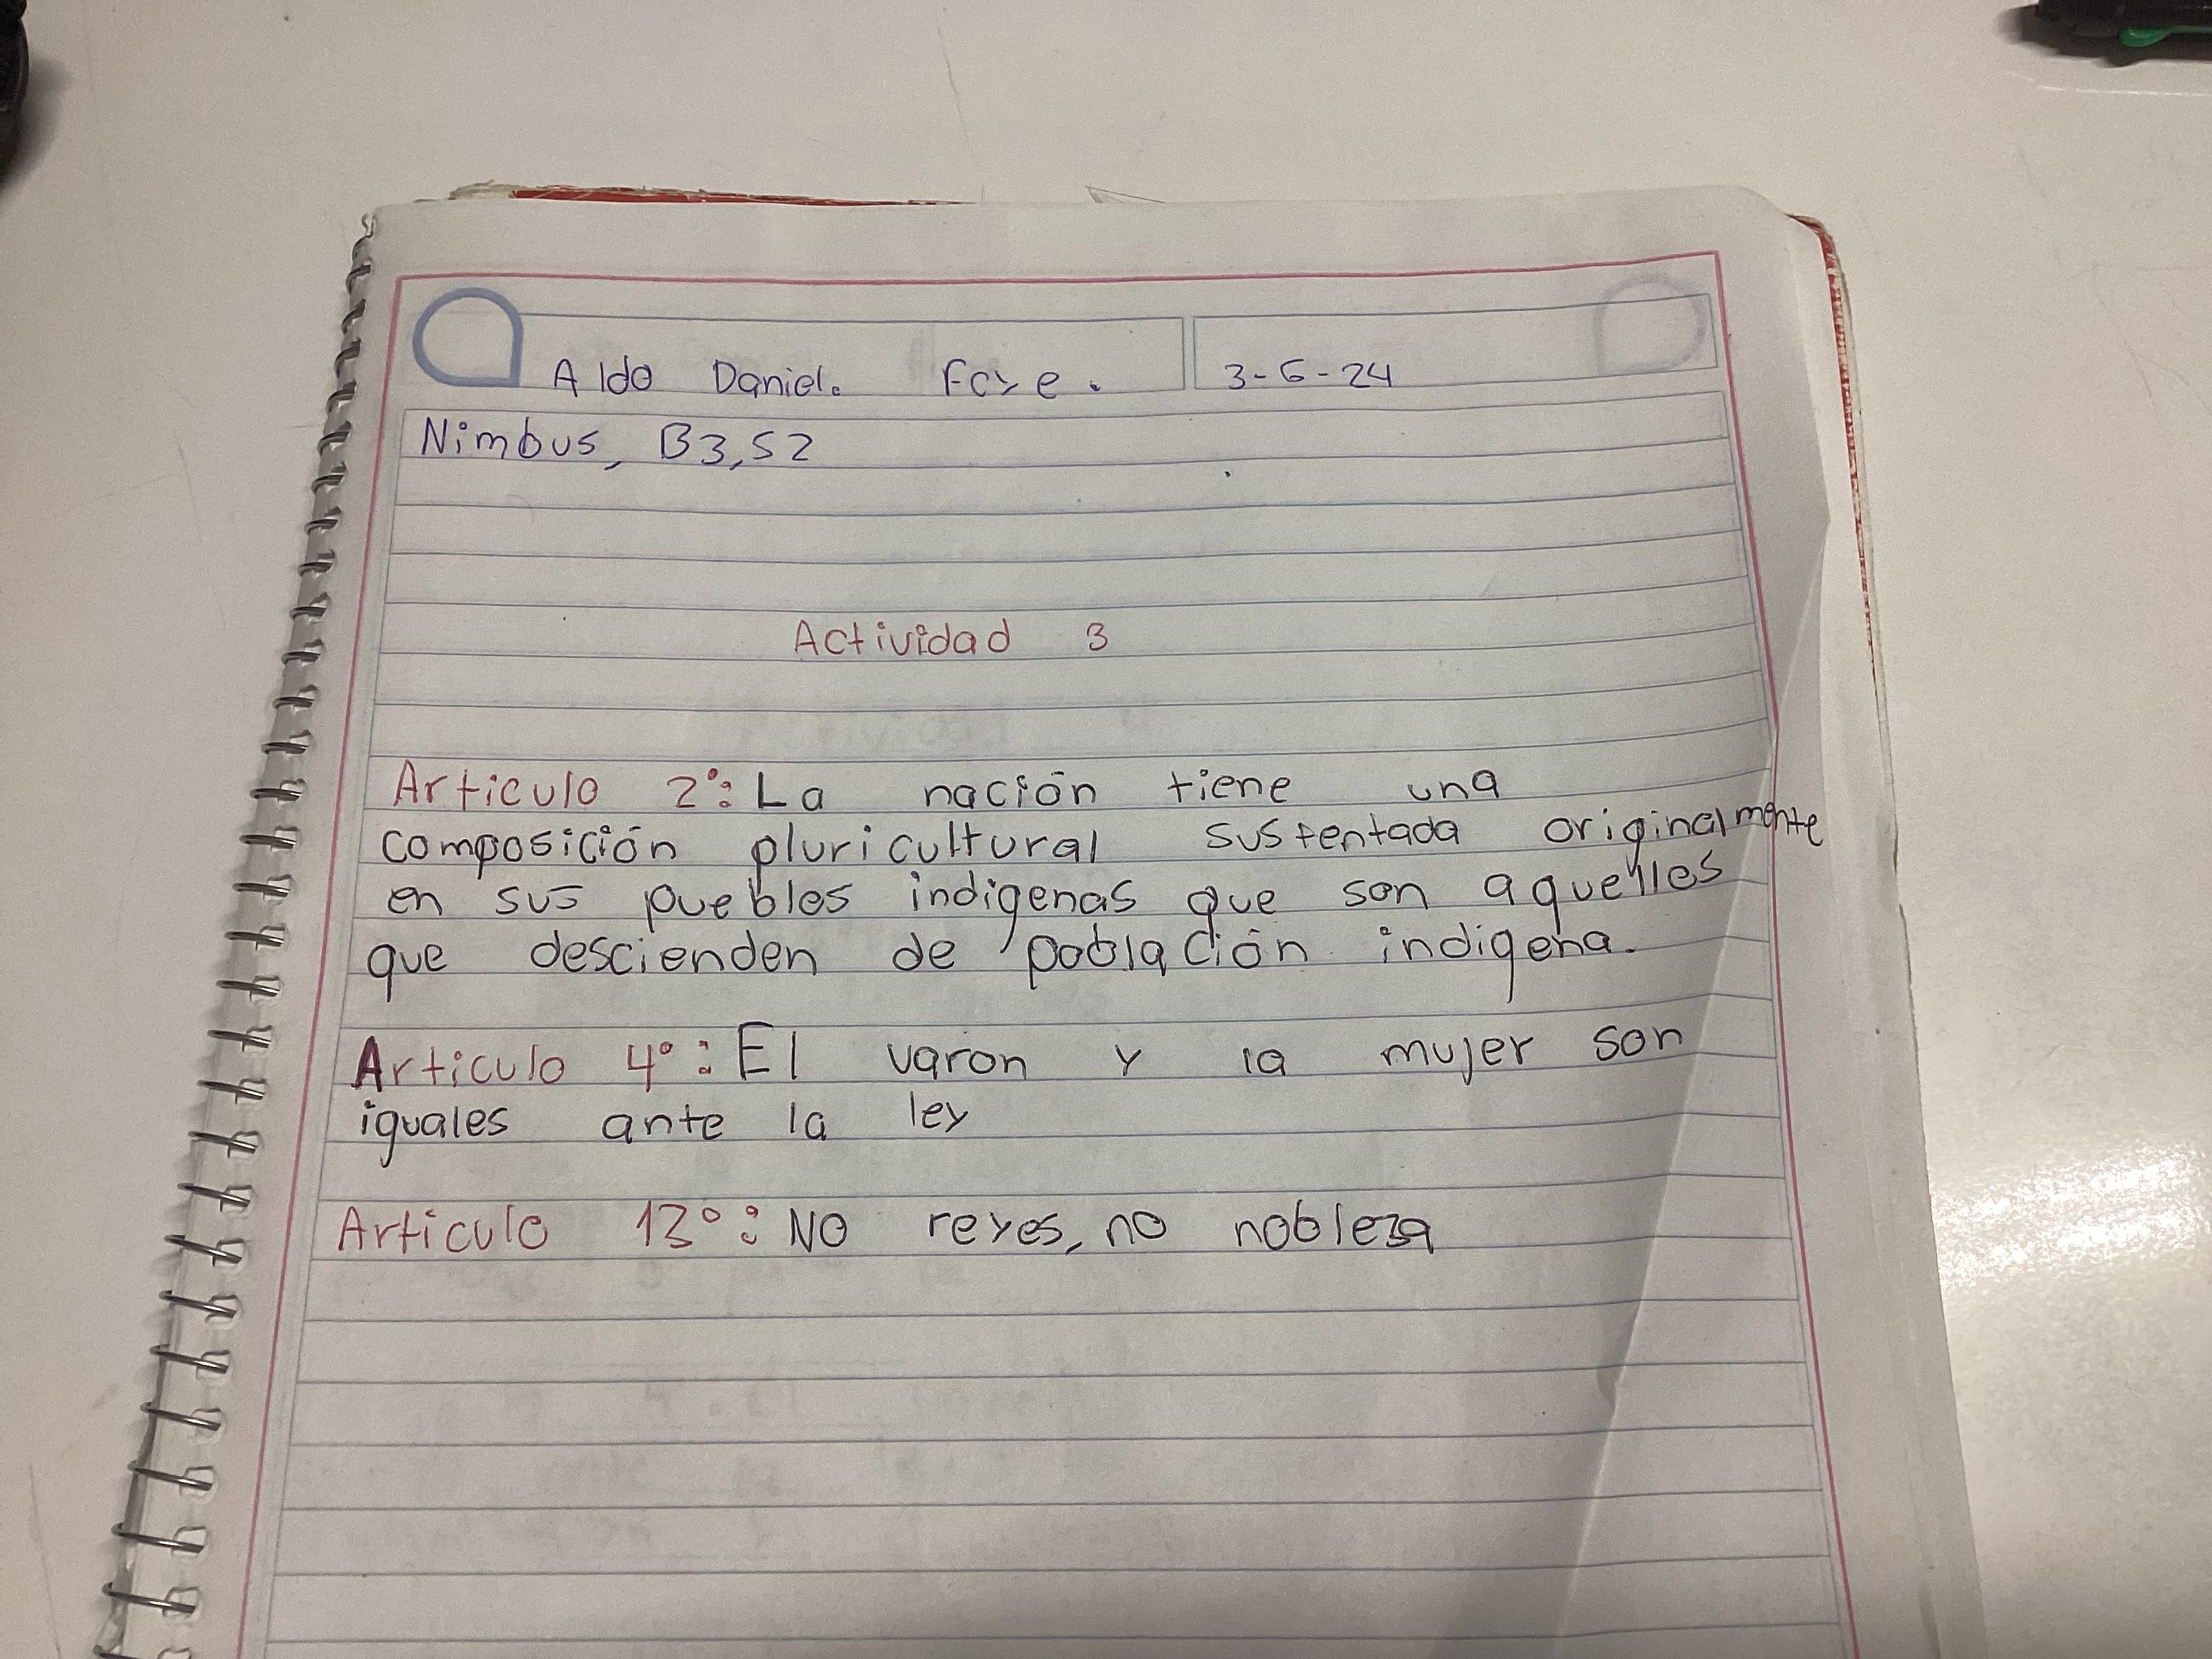 Aldo Daniel. Fcye. 3-6-24
Nimbus, B3,S2
Actividad 3
Articulo 2°: La nación tiene una
composición pluricultural sustentada originalmente
en sus pueblos indigenas que son aquellos
que descienden de población indigena.
Articulo 4°: El varon y la mujer son
iguales ante la ley
Articulo 13°: No reyes, no nobleza